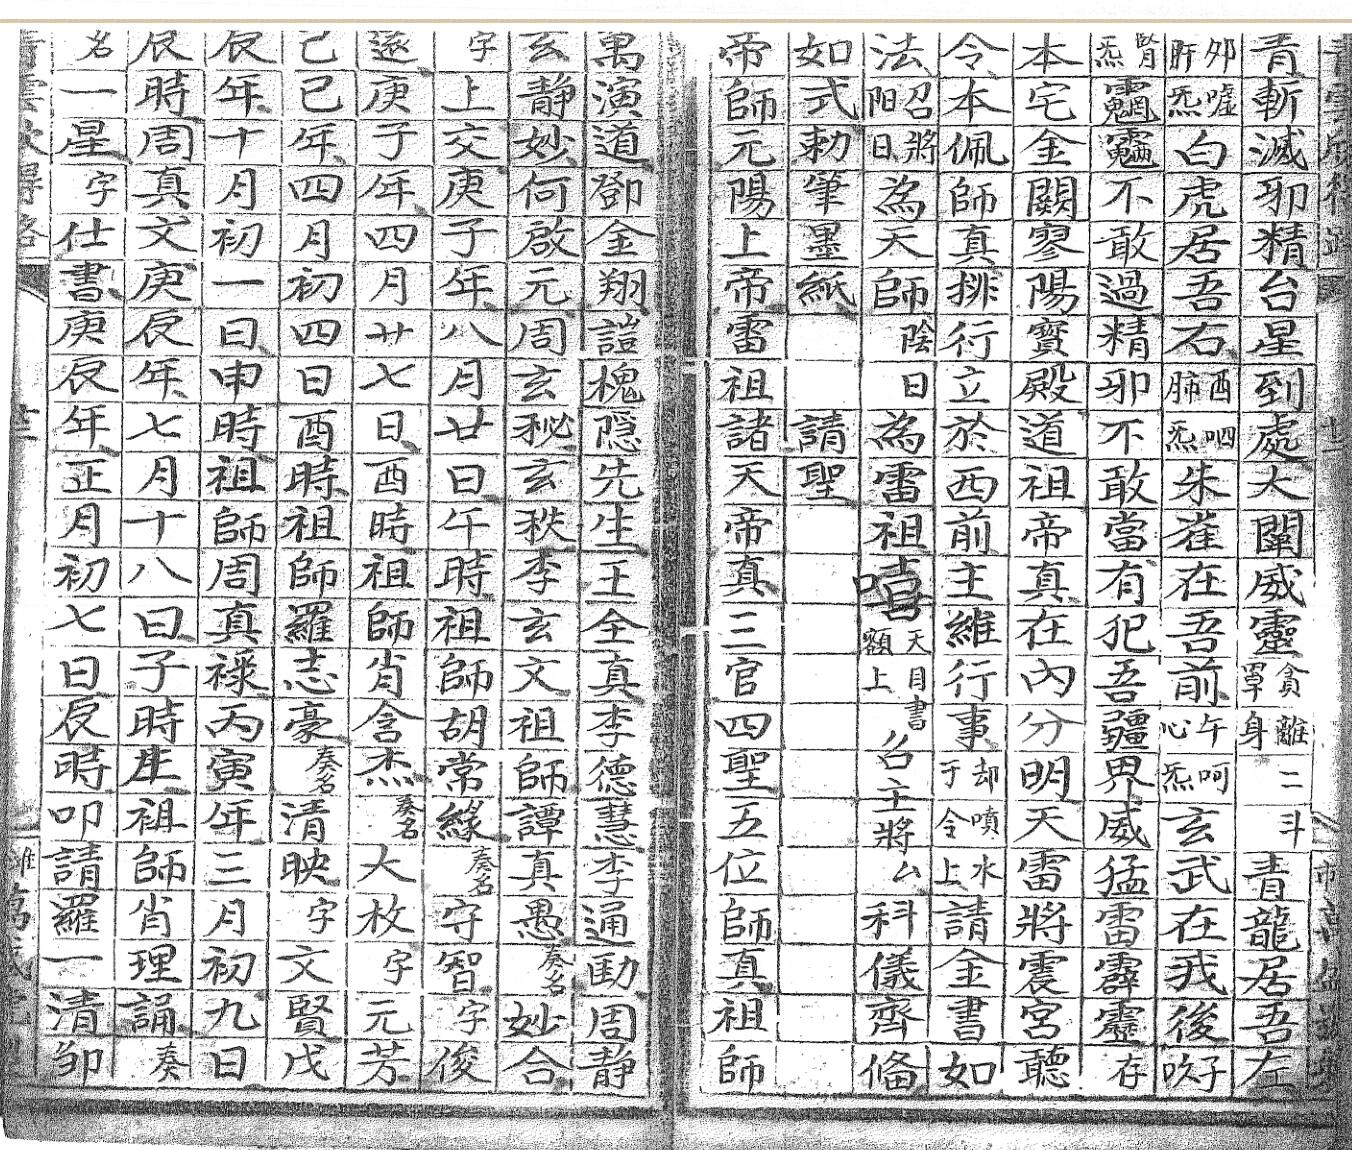 青斬滅邪精台星到處大闡威靈貪罩離身二斗青龍居吾左
卯肝嘘炁白虎居吾右酉肺呬炁朱雀在吾前午心呵炁玄武在我後子吹
腎炁不敢過精邪不敢當有犯吾疆界威猛雷霹靈存
本宅金闕寥陽寶殿道祖帝真在內分明天雷將震宮聽
令本佩師真排行立於西前主維行事却于噴令水上請金書如
法召陽將日為天師陰日為雷祖嘻天額目上書名主將厶科儀齊俻
如式勅筆墨紙 請聖
帝師元陽上帝雷祖諸天帝真三官四聖五位師真祖師
萬演道鄧金翔諠槐隠先生王全真李德慧李通勛周静
玄靜妙何啟元周玄秘玄秩李玄文祖師譚真愚奏名妙合
字上交庚子年八月廿日午時祖師胡常緣奏名守智字俊
遂庚子年四月廿七日酉時祖師肖含杰奏名大枚字元芳
己巳年四月初四日酉時祖師羅志豪奏名清映字文賢戊
辰年十月初一日申時祖師周真祿丙寅年三月初九日
辰時周真文庚辰年七月十八日子時生祖師肖理誦奏
名一星字仕書庚辰年正月初七日辰時叩請羅一清卯